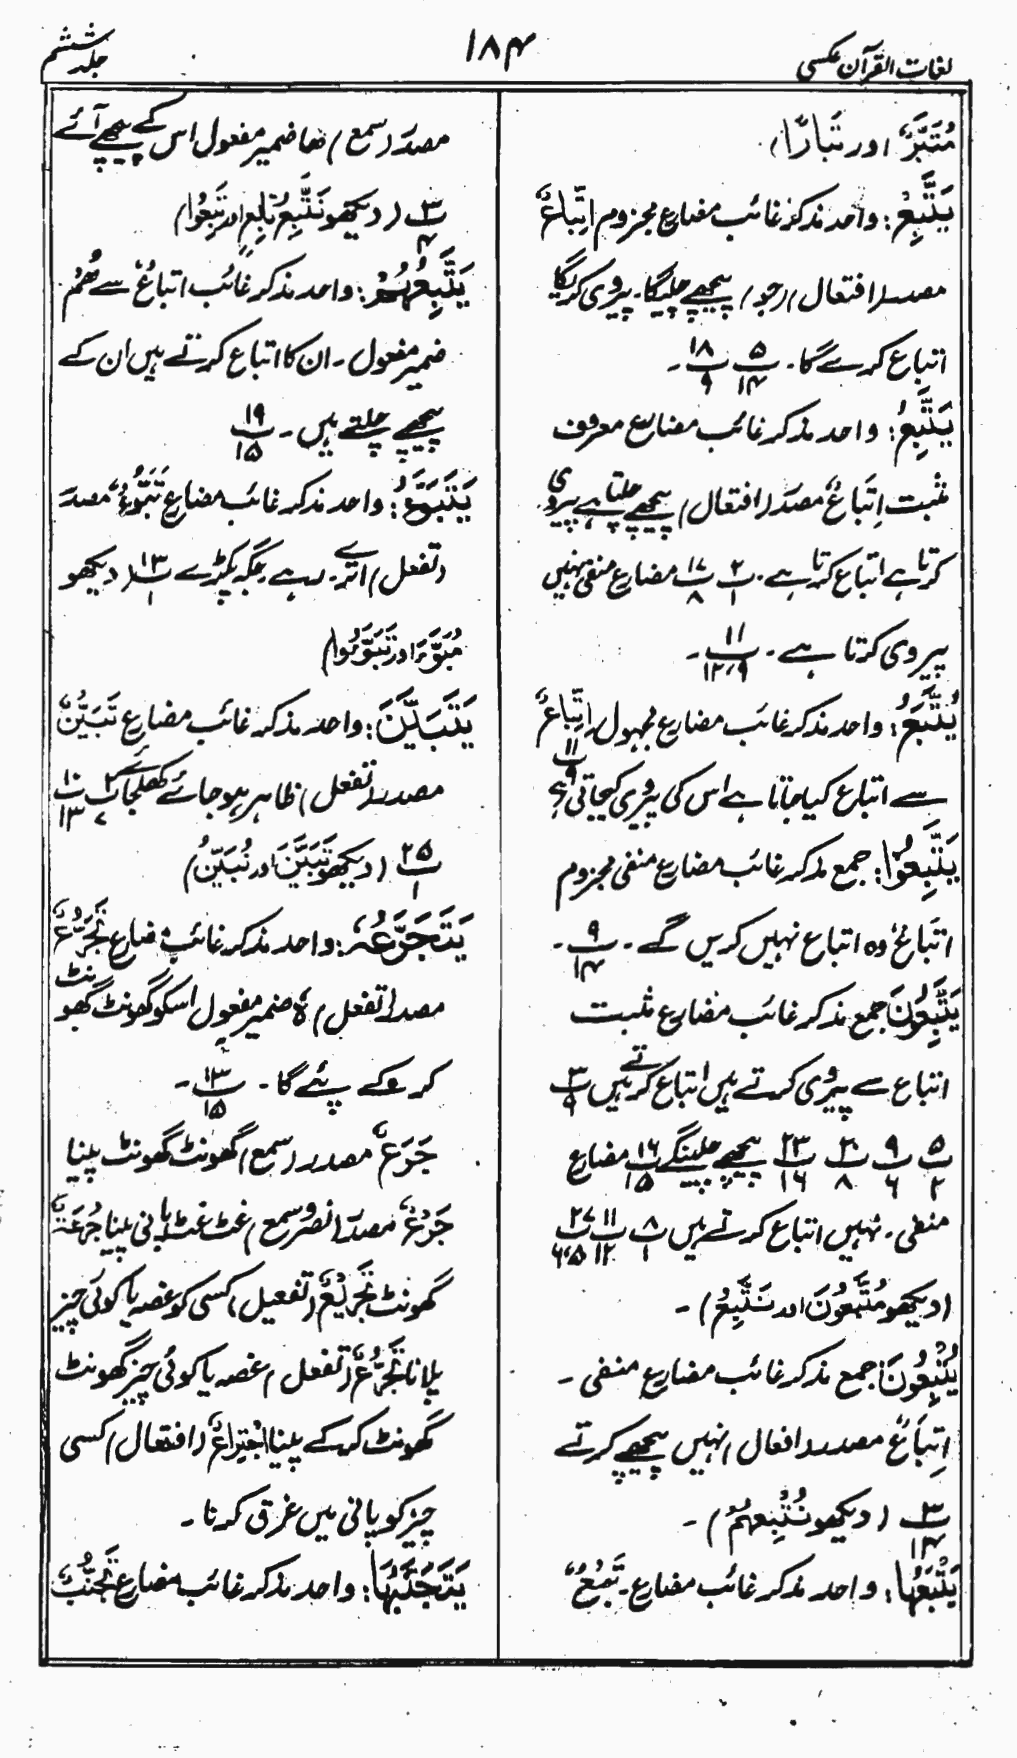 لغات القرآن عکسی
۱۸۴
جلد ششم
مُتَبَّرٌ اور تَبَارًا)
یَتَّبِعْ: واحد مذکر غائب مضارع مجزوم اِتِّبَاعٌ
مصدر (افتعال) (رجو) پیچھے چلیگا۔ پیروی کریگا
اتباع کرے گا۔ ۵/۱۴ پ ۱۸/۹ پ۔
یَتَّبِعُ: واحد مذکر غائب مضارع معروف
مثبت اِتِّبَاعٌ مصدر (افتعال) پیچھے چلتا ہے پیروی
کرتا ہے اتباع کرتا ہے۔ پ ۲/۱ پ ۱۷/۸ مضارع منفی نہیں
پیروی کرتا ہے۔ ۱۱/۱۲،۹۔
یُتَّبَعُ: واحد مذکر غائب مضارع مجہول اِتِّبَاعٌ
سے اتباع کیا جاتا ہے اس کی پیروی کیجاتی ہے ۱۱/۹
یَتَّبِعُوْا: جمع مذکر غائب مضارع منفی مجزوم
اتباعٌ وہ اتباع نہیں کریں گے۔ ۹/۱۴۔
یَتَّبِعُوْنَ جمع مذکر غائب مضارع مثبت
اتباع سے پیروی کرتے ہیں اتباع کرتے ہیں پ ۳/۹
پ ۵/۲ پ ۹/۶ پ ۳/۸ پ ۲۳/۱۶ پیچھے چلینگے پ ۱۶/۱۵ مضارع
منفی۔ نہیں اتباع کرتے ہیں پ ۸/۱ پ ۱۱/۱۲ پ ۲۷/۶،۵
(دیکھو مُتَّبِعُوْنَ اور نَتَّبِعُ)۔
یُتْبِعُوْنَ: جمع مذکر غائب مضارع منفی۔
اِتبَاعٌ مصدر (افعال) نہیں پیچھے کرتے
پ ۳/۱۴ (دیکھو نُتْبِعُهُمْ)۔
یَتْبَعُهَا: واحد مذکر غائب مضارع۔ تَبْعٌ
مصدر (سمع) ھا ضمیر مفعول اس کے پیچھے آئے
پ ۳/۴ (دیکھو نَتَّبِعُ تَابِعٍ اور تَبِعُوا)
یَتَّبِعُهُمْ: واحد مذکر غائب اتباعٌ سے هُمْ
ضمیر مفعول۔ ان کا اتباع کرتے ہیں ان کے
پیچھے چلتے ہیں۔ پ ۱۹/۱۵
یَتَبَوَّءُ: واحد مذکر غائب مضارع تَبَوُّءٌ مصدر
(تفعل) اترے۔ رہے جگہ پکڑے پ ۱۳/۱ (دیکھو
مُبَوَّءَ اور تَبَوَّءُوا)
یَتَبَیَّنَ: واحد مذکر غائب مضارع تَبَیُّنٌ
مصدر (تفعل) ظاہر ہو جائے کھل جائے پ ۲/۷ پ ۱۰/۱۳
پ ۲۵/۱ (دیکھو تَبَیَّنَ اور نُبَیِّنُ)
یَتَجَرَّعُهٗ: واحد مذکر غائب مضارع تَجَرُّعٌ
مصدر (تفعل) ہٗ ضمیر مفعول اسکو گھونٹ گھونٹ
کر کے پئے گا۔ پ ۱۳/۱۵۔
جَرَعٌ مصدر (سمع) گھونٹ گھونٹ پینا
جَرْعٌ مصدر (نصر و سمع) غٹ غٹ پانی پینا جُرْعَةٌ
گھونٹ تَجْرِیْعٌ (تفعیل) کسی کو غصہ یا کوئی چیز
پلانا تَجَرُّعٌ (تفعل) غصہ یا کوئی چیز گھونٹ
گھونٹ کر کے پینا اِجْتِرَاعٌ (افتعال) کسی
چیز کو پانی میں غرق کرنا۔
یَتَجَنَّبُهَا: واحد مذکر غائب مضارع تَجَنُّبٌ